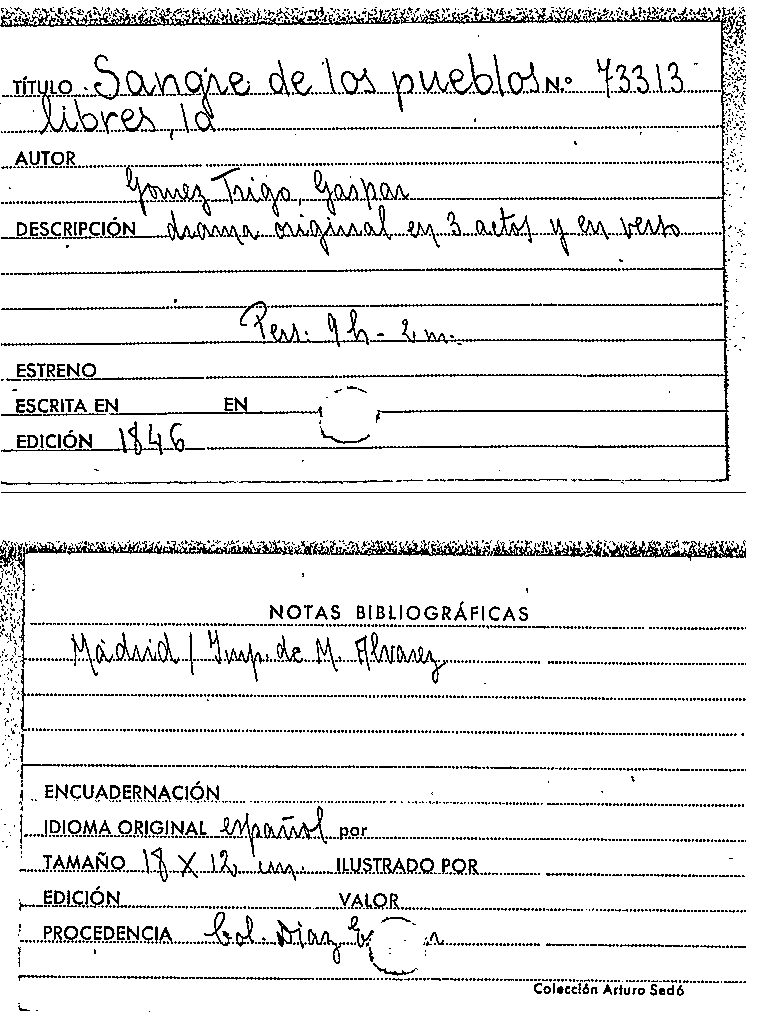 TÍTULO Sangre de los pueblos N.º 73313
libres, la
AUTOR
Gomez Trigo, Gaspar
DESCRIPCIÓN drama original en 3 actos y en verso
Pers. 9 h - 2 m.
ESTRENO
ESCRITA EN EN
EDICIÓN 1846
NOTAS BIBLIOGRÁFICAS
Madrid / Imp. de M. Alvarez
ENCUADERNACIÓN
IDIOMA ORIGINAL español por
TAMAÑO 18 X 12 cm. ILUSTRADO POR
EDICIÓN VALOR
PROCEDENCIA Col. Diaz
Colección Arturo Sedó